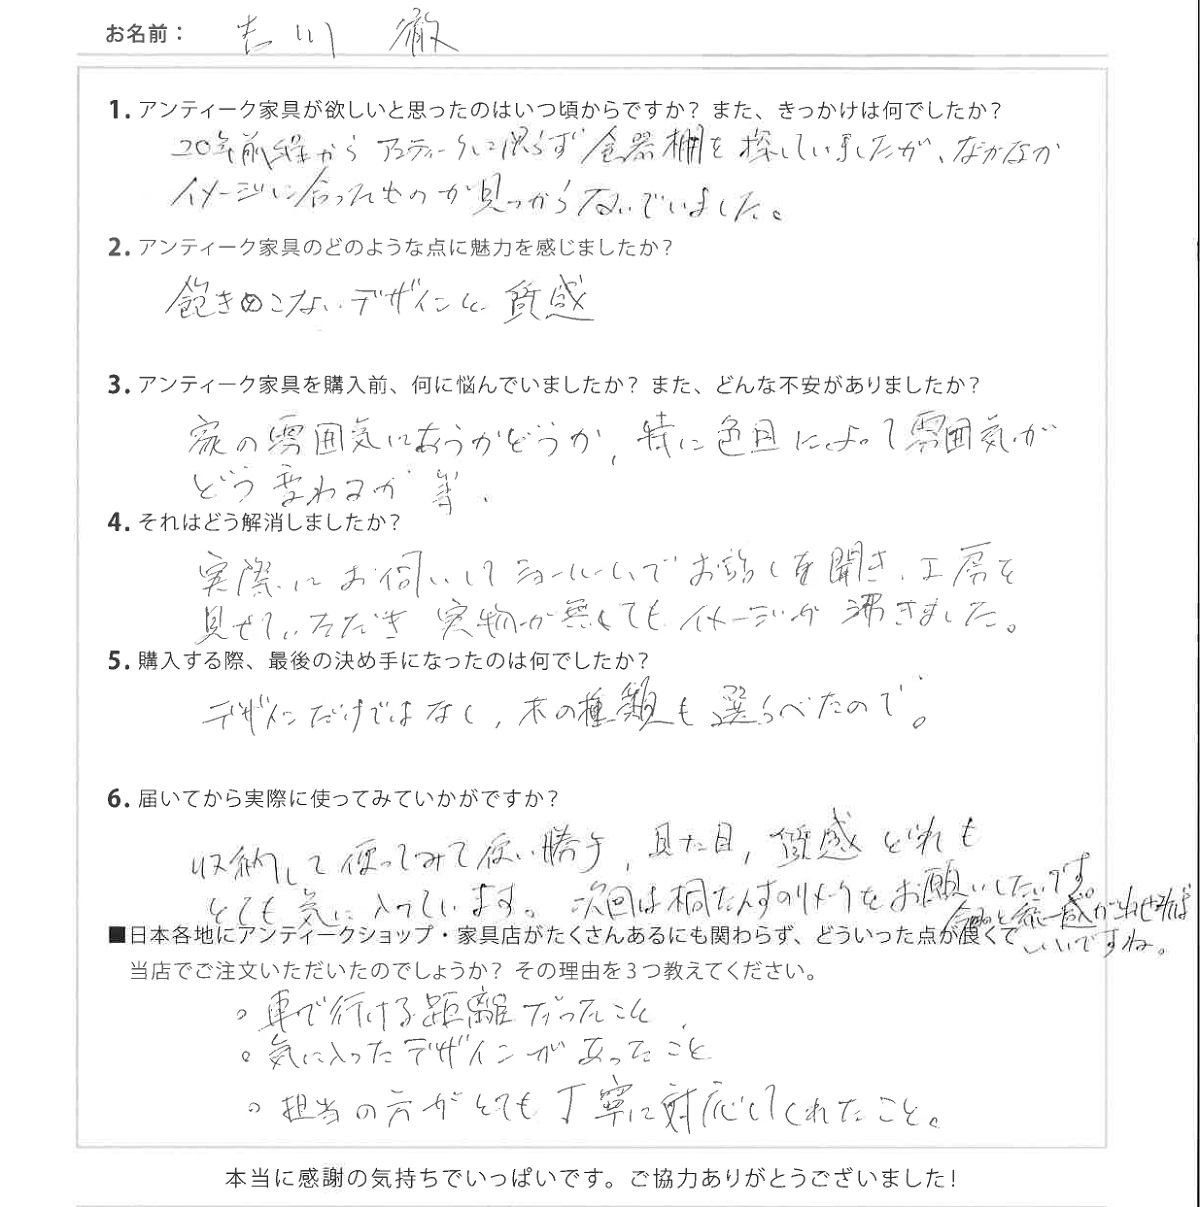 お名前： 吉川 徹
1. アンティーク家具が欲しいと思ったのはいつ頃からですか？ また、きっかけは何でしたか？
20年前程から アンティークに限らず 食器棚を 探していましたが、なかなか
イメージに合ったものが見つからないでいました。
2. アンティーク家具のどのような点に魅力を感じましたか？
飽きのこない デザインと 質感
3. アンティーク家具を購入前、何に悩んでいましたか？ また、どんな不安がありましたか？
家の雰囲気にあうかどうか, 特に色目によって雰囲気が
どう変わるか 等.
4. それはどう解消しましたか？
実際にお伺いしてショールームでお話しを聞き、工房を
見せていただき 実物が無くても イメージが 沸きました。
5. 購入する際、最後の決め手になったのは何でしたか？
デザインだけではなく, 木の種類も 選らべたので。
6. 届いてから実際に使ってみていかがですか？
収納して使ってみて使い勝手, 見た目, 質感 どれも
とても 気に入っています。 次回は桐たんすのリメークをお願いしたいです。
統一感が出せれば
いいですね。
■日本各地にアンティークショップ・家具店がたくさんあるにも関わらず、どういった点が良くて
当店でご注文いただいたのでしょうか？ その理由を３つ教えてください。
◦ 車で行ける距離だったこと
◦ 気に入ったデザインがあったこと
◦ 担当の方がとても 丁寧に対応してくれたこと。
本当に感謝の気持ちでいっぱいです。ご協力ありがとうございました！